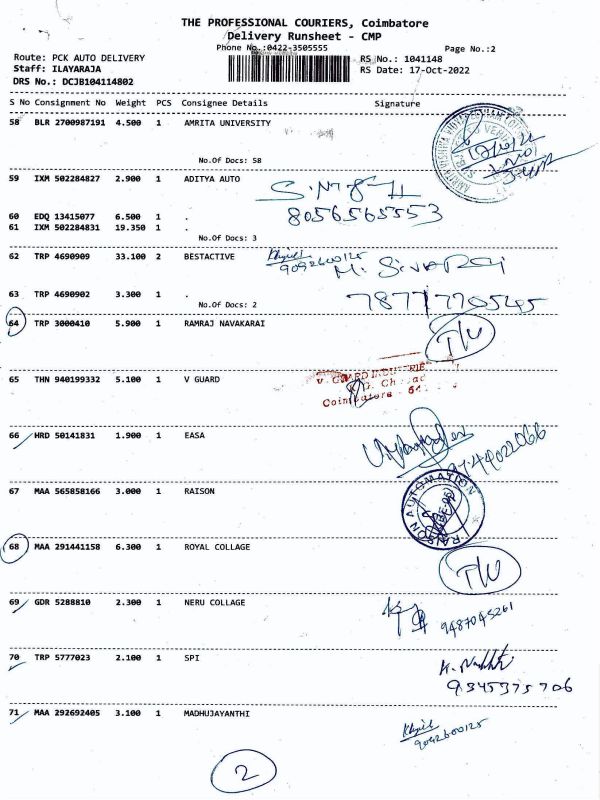 THE PROFESSIONAL COURIERS, Coimbatore
Delivery Runsheet - CMP
Phone No.:0422-3505555
Page No.:2
Route: PCK AUTO DELIVERY
RS No.: 1041148
Staff: ILAYARAJA
RS Date: 17-Oct-2022
DRS No.: DCJB104114802
S No Consignment No Weight PCS Consignee Details Signature
58 BLR 2700987191 4.500 1 AMRITA UNIVERSITY
No.Of Docs: 58
59 IXM 502284827 2.900 1 ADITYA AUTO
8056565553
60 EDQ 13415077 6.500 1 .
61 IXM 502284831 19.350 1 .
No.Of Docs: 3
62 TRP 4690909 33.100 2 BESTACTIVE
9092600125
M. SIVARAJ
63 TRP 4690902 3.300 1 .
No.Of Docs: 2
64 TRP 3000410 5.900 1 RAMRAJ NAVAKARAI
65 THN 940199332 5.100 1 V GUARD
Coimbatore
66 HRD 50141831 1.900 1 EASA
67 MAA 565858166 3.000 1 RAISON
RAISON AUTOMATION
68 MAA 291441158 6.300 1 ROYAL COLLAGE
69 GDR 5288810 2.300 1 NERU COLLAGE
9487045261
70 TRP 5777023 2.100 1 SPI
9345375706
71 MAA 292692405 3.100 1 MADHUJAYANTHI
9092600125
2